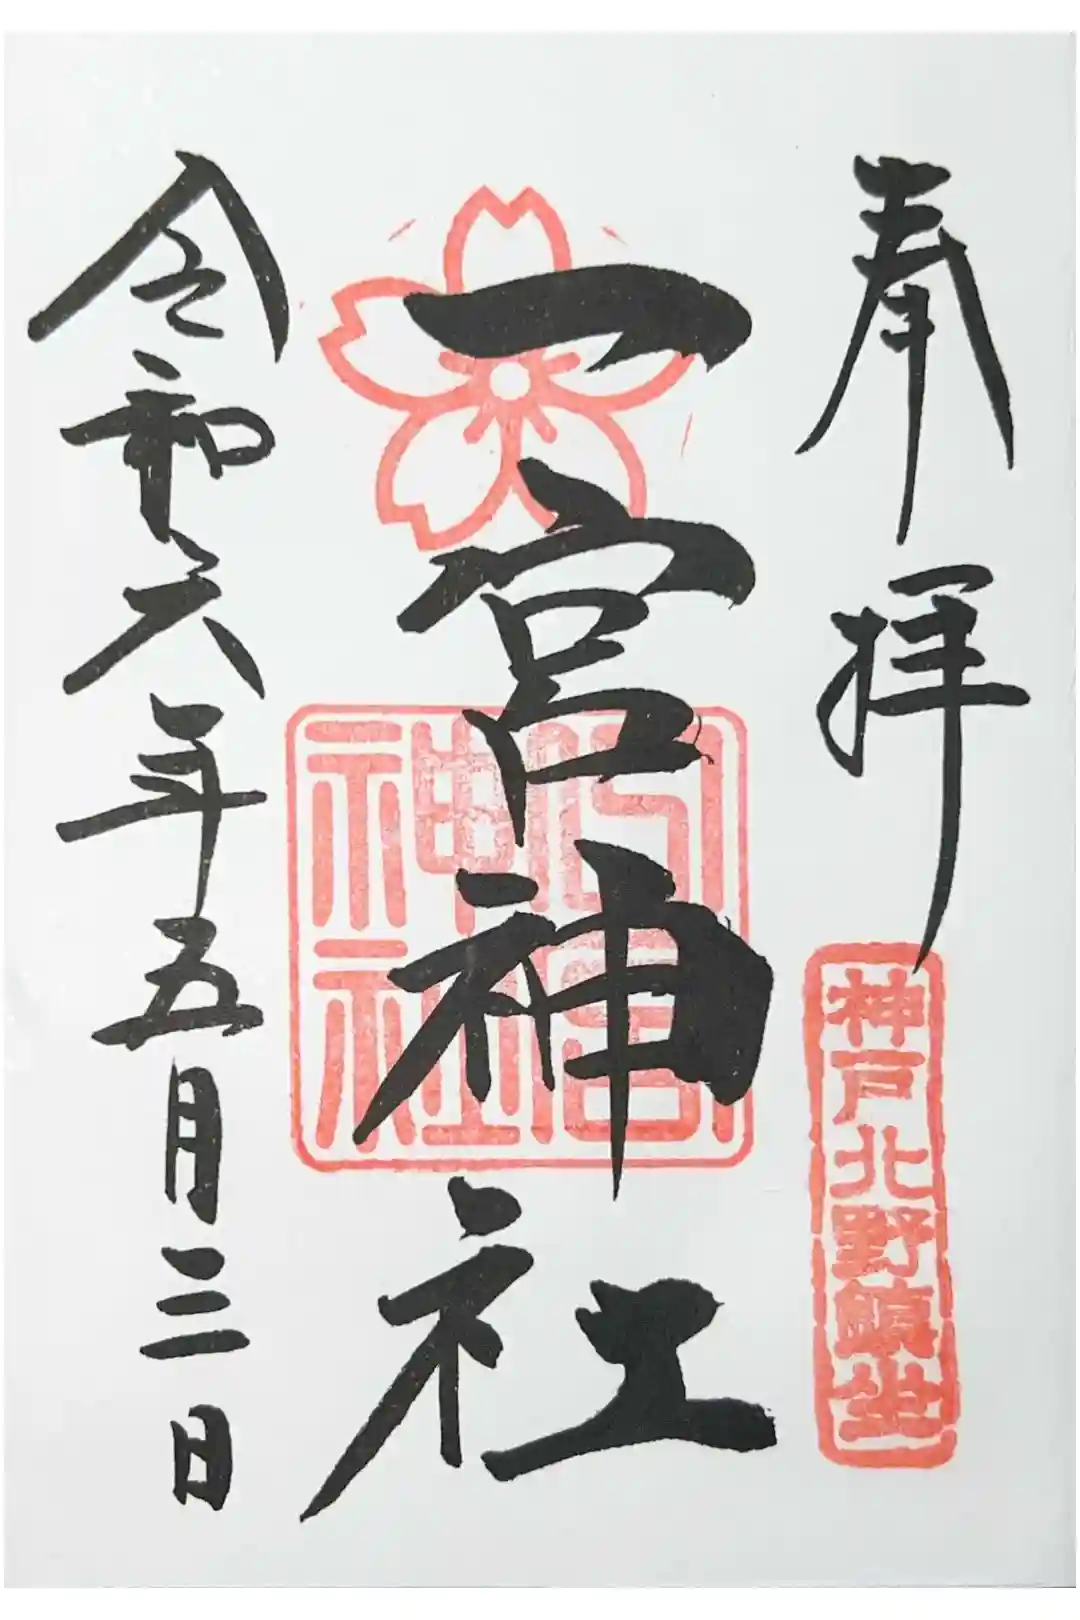 奉拝
神戸北野鎮坐
一宮神社
一宮
神社
令和六年五月三日